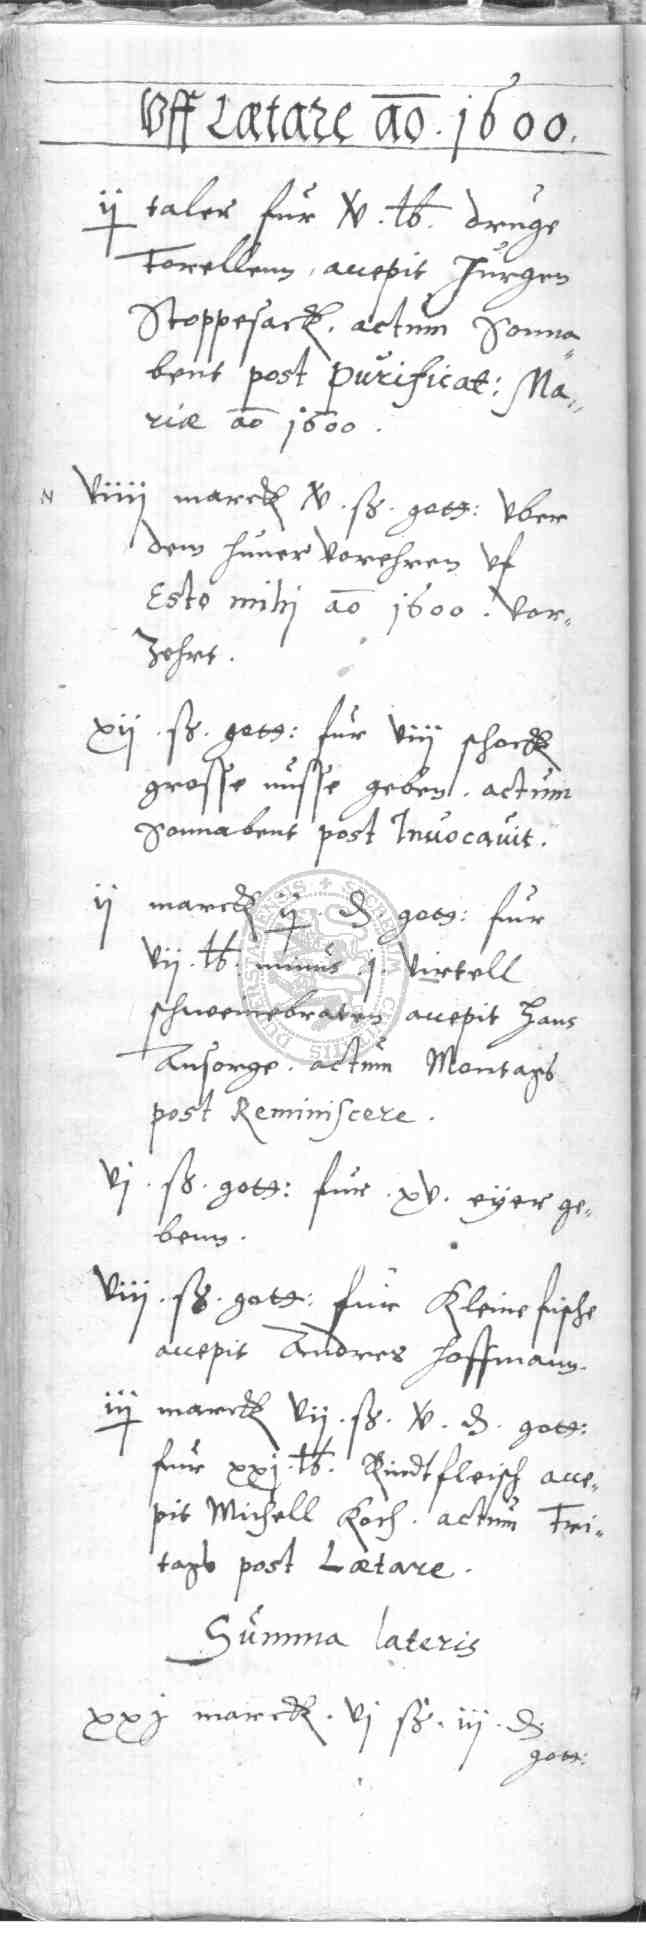 Vff Lætare aō. 1600.
ij taler fur XV. lb. druge
Forellenn, accepit Jurgen
Stoppesack. actum Sonna=
bent post purificat: Ma=
riæ aō 1600.
N Viiij marck XV. ß. gott: vber
dem huner vorehren vf
Esto mihi aō 1600. Vor=
Zehrt.
xij. ß. gott: fur Viij schock
grosse nusse geben. actum
Sonnabent post Invocavit.
ij marck ij. ₰. gott: fur
Vij. lb. minus. j. Virtell
schweinebraten accepit Hans
Ansorge. actum Montags
post Reminiscere.
Vj. ß. gott: fur. xv. eÿer ge=
benn.
Viij. ß. gott: fur Kleine fische
accepit Andres Hoffmann.
iij marck Vij. ß. V. ₰. gott:
fuur xxj. lb. Rindtfleisch acce=
pit Michell Koch. actum Fri=
tags post Lætare.
Summa lateris
xxj marck. Vj ß. iij. ₰.
gott: